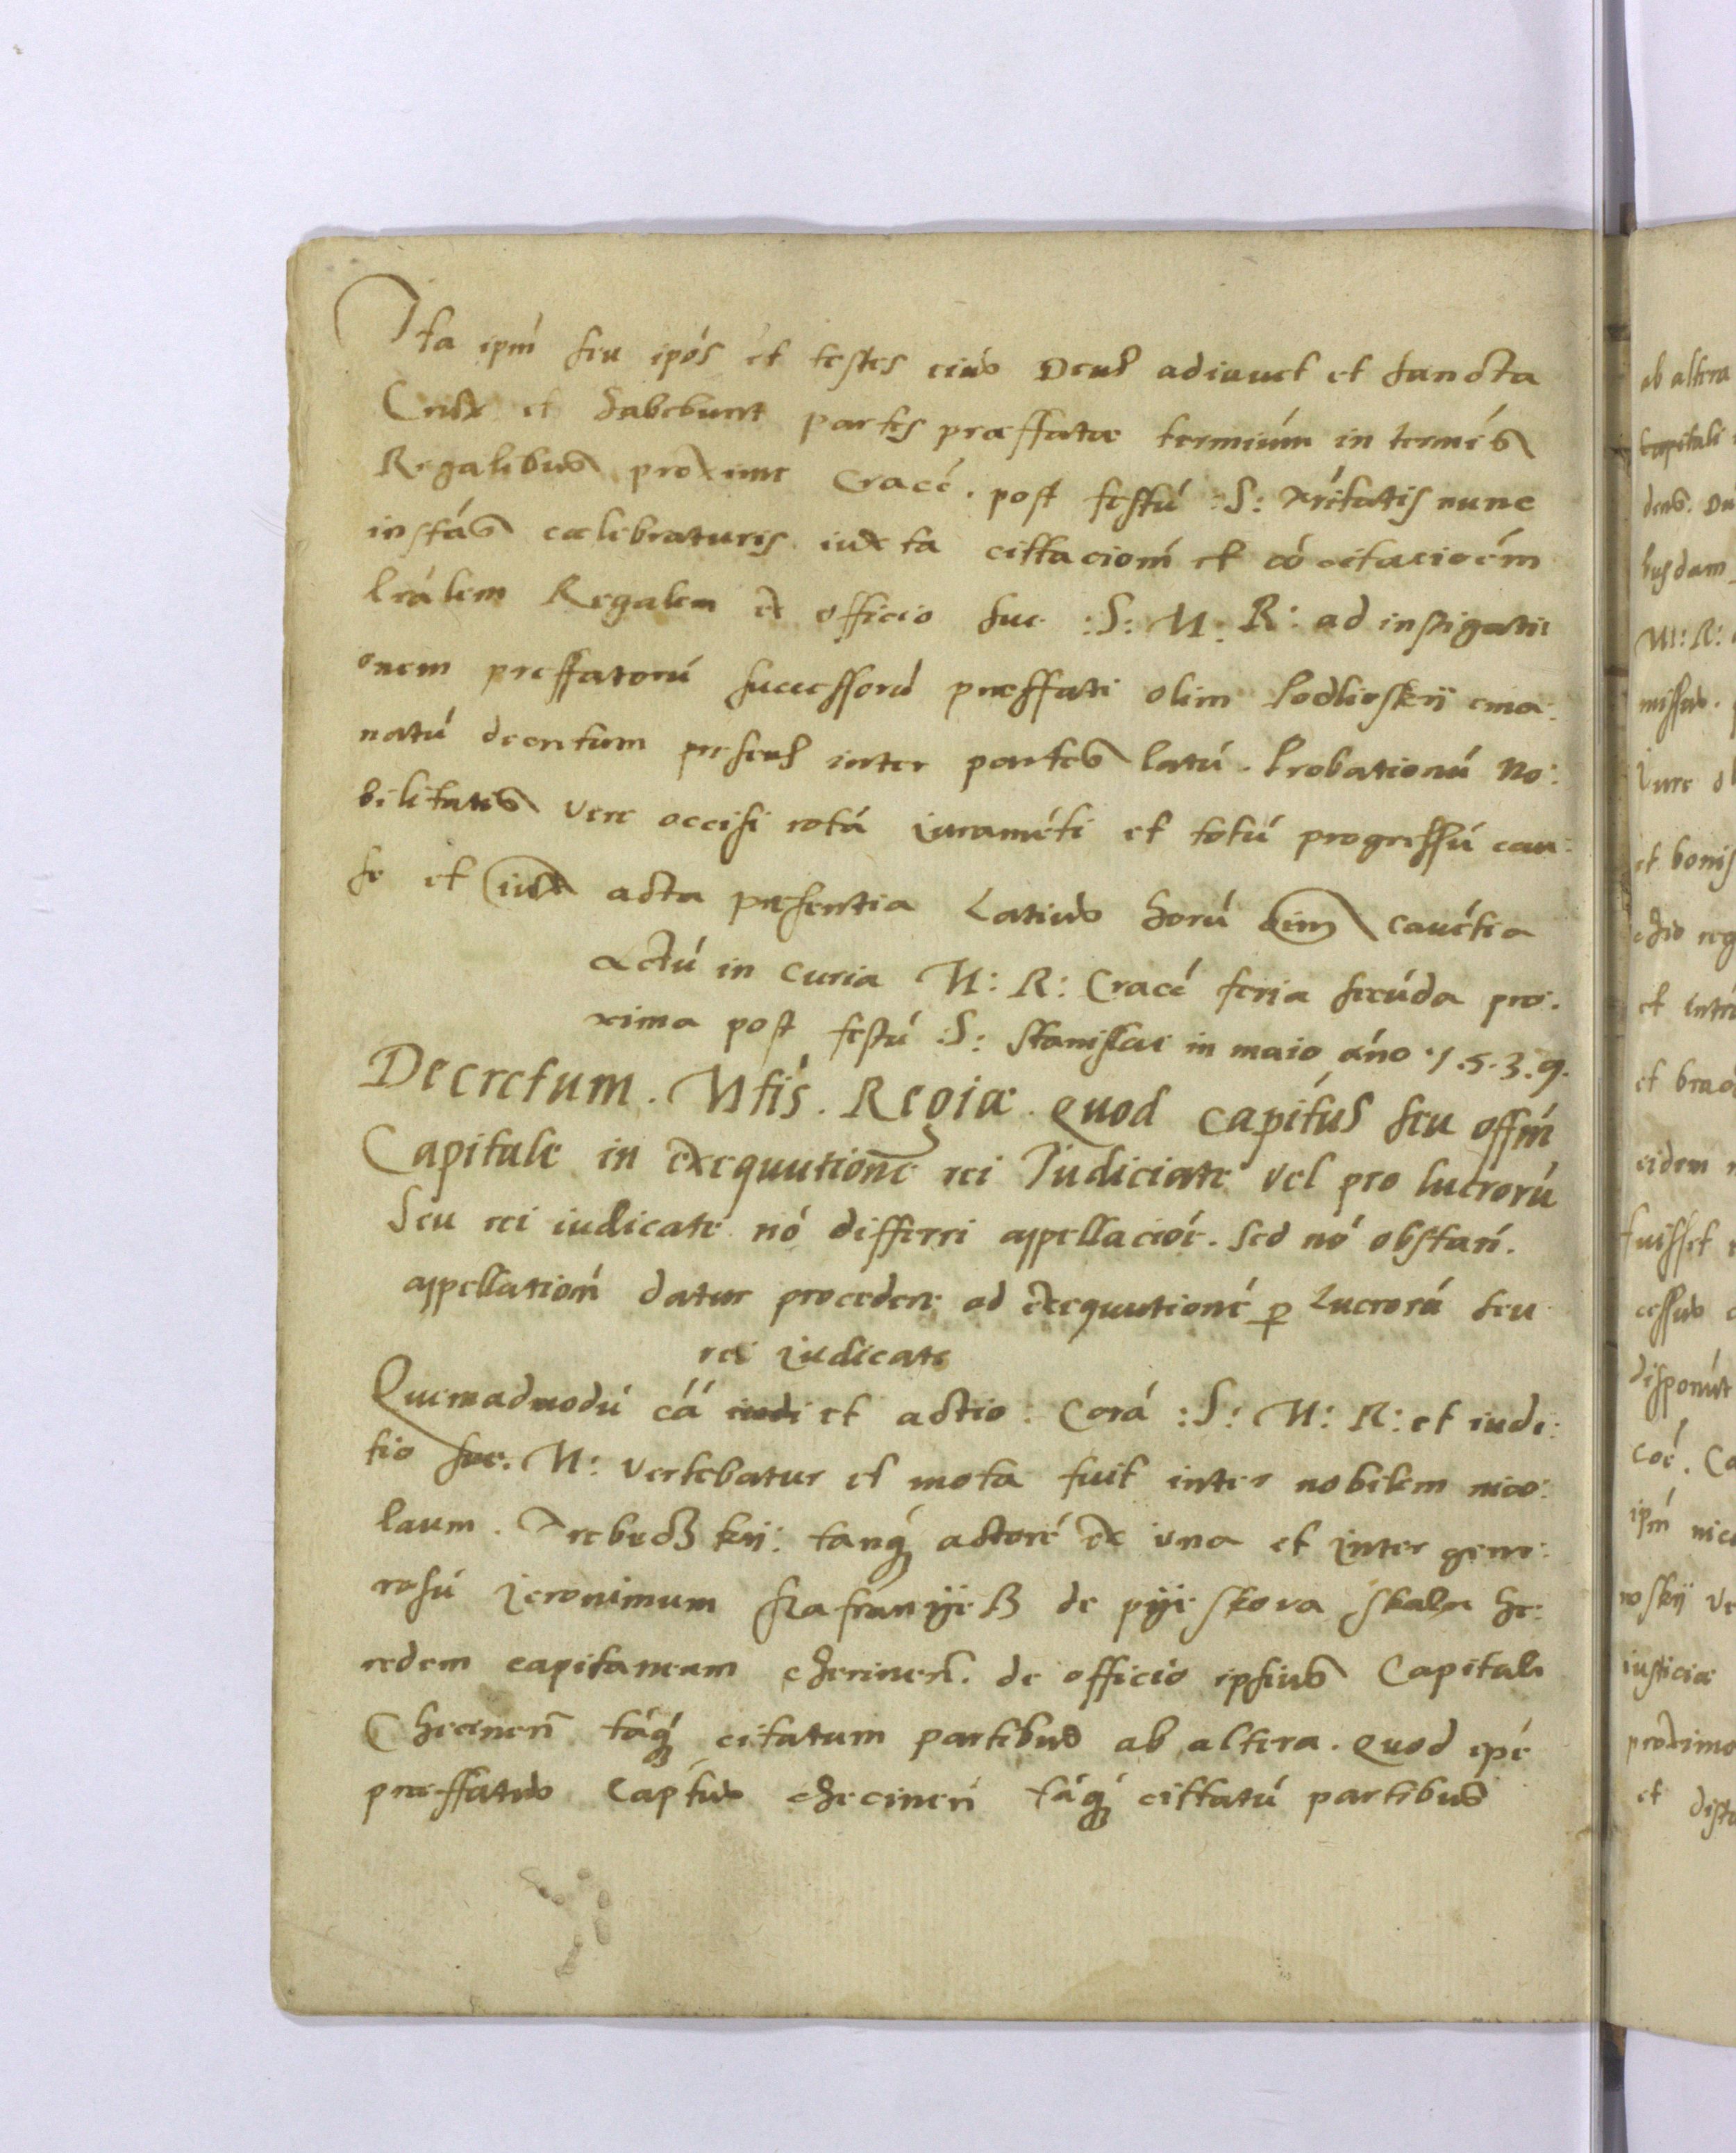 Ita ipm̃ seu ipós et testes eius Deus adiuuet et sancta
Crux et habebunt partes præffatæ termiúm in termíb9
Regalibus proxime Cracé. post festú :S: Tritatis nunc
instáb9 cælebraturis iuxta cittacioń et có citacioém
lrálem Regalem ex officio sue :S: M: R: ad instigati
onem preffatorú successorú præffati olim Podlioskii ema:
natú decretum presens inter partes latú. Probationú No:
bilitatis vere occisi rotá iuraméti et totú progressú cau:
se et iux acta præsentia Latius horú oim cauétia
Actú in curia M: R: Cracé feria secúda pro:
xima post festú :S: Stanislai in maio áno .1.5.3.9.
Decretum. Mtis. Regiæ. quod capítus seu offm̃
Capitale in exequutione rei Iudiciate vel pro lucrorú
Seu rei iudicate nó differri appellacióe. sed nó obstań.
appellatioń datur procedere ad exequutioné p lucrorú seu
rei iudicate
Quemadmodú cáá iudi et actio. Corá :S: M: R: et iudi:
tio sue. M: vertebatur et mota fuit inter nobilem nico:
laum. Trebuchß kii: tanq́ actoré ex una et inter gene:
rosú Jeronimum sKafranyeß de pyeskova skala he:
redem capitaneum checineñ. de officio ipsius Capitali
Checineñ táq́ citatum partibus ab altera. quod ipé
præffatus Captus checineñ táq́ cittatú partibus
ab altera
Capitali
busdam
M: R:
missus.
Iure
et bonis
et
eidem
fuisset
cessus
disponút
coé.
ipm̃
iusticiæ
proximo
et